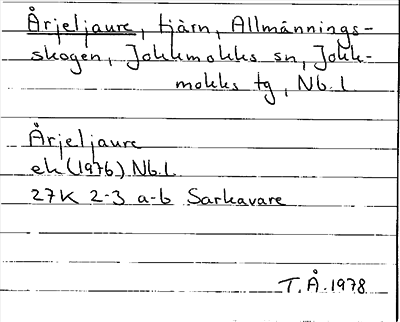 Årjeljaure, tjärn, Allmännings-
skogen, Jokkmokks sn, Jokk-
mokks tg, Nb.l
Årjeljaure
ek (1976) Nb.l
27K 2-3 a-b Sarkavare
T.Å.1978